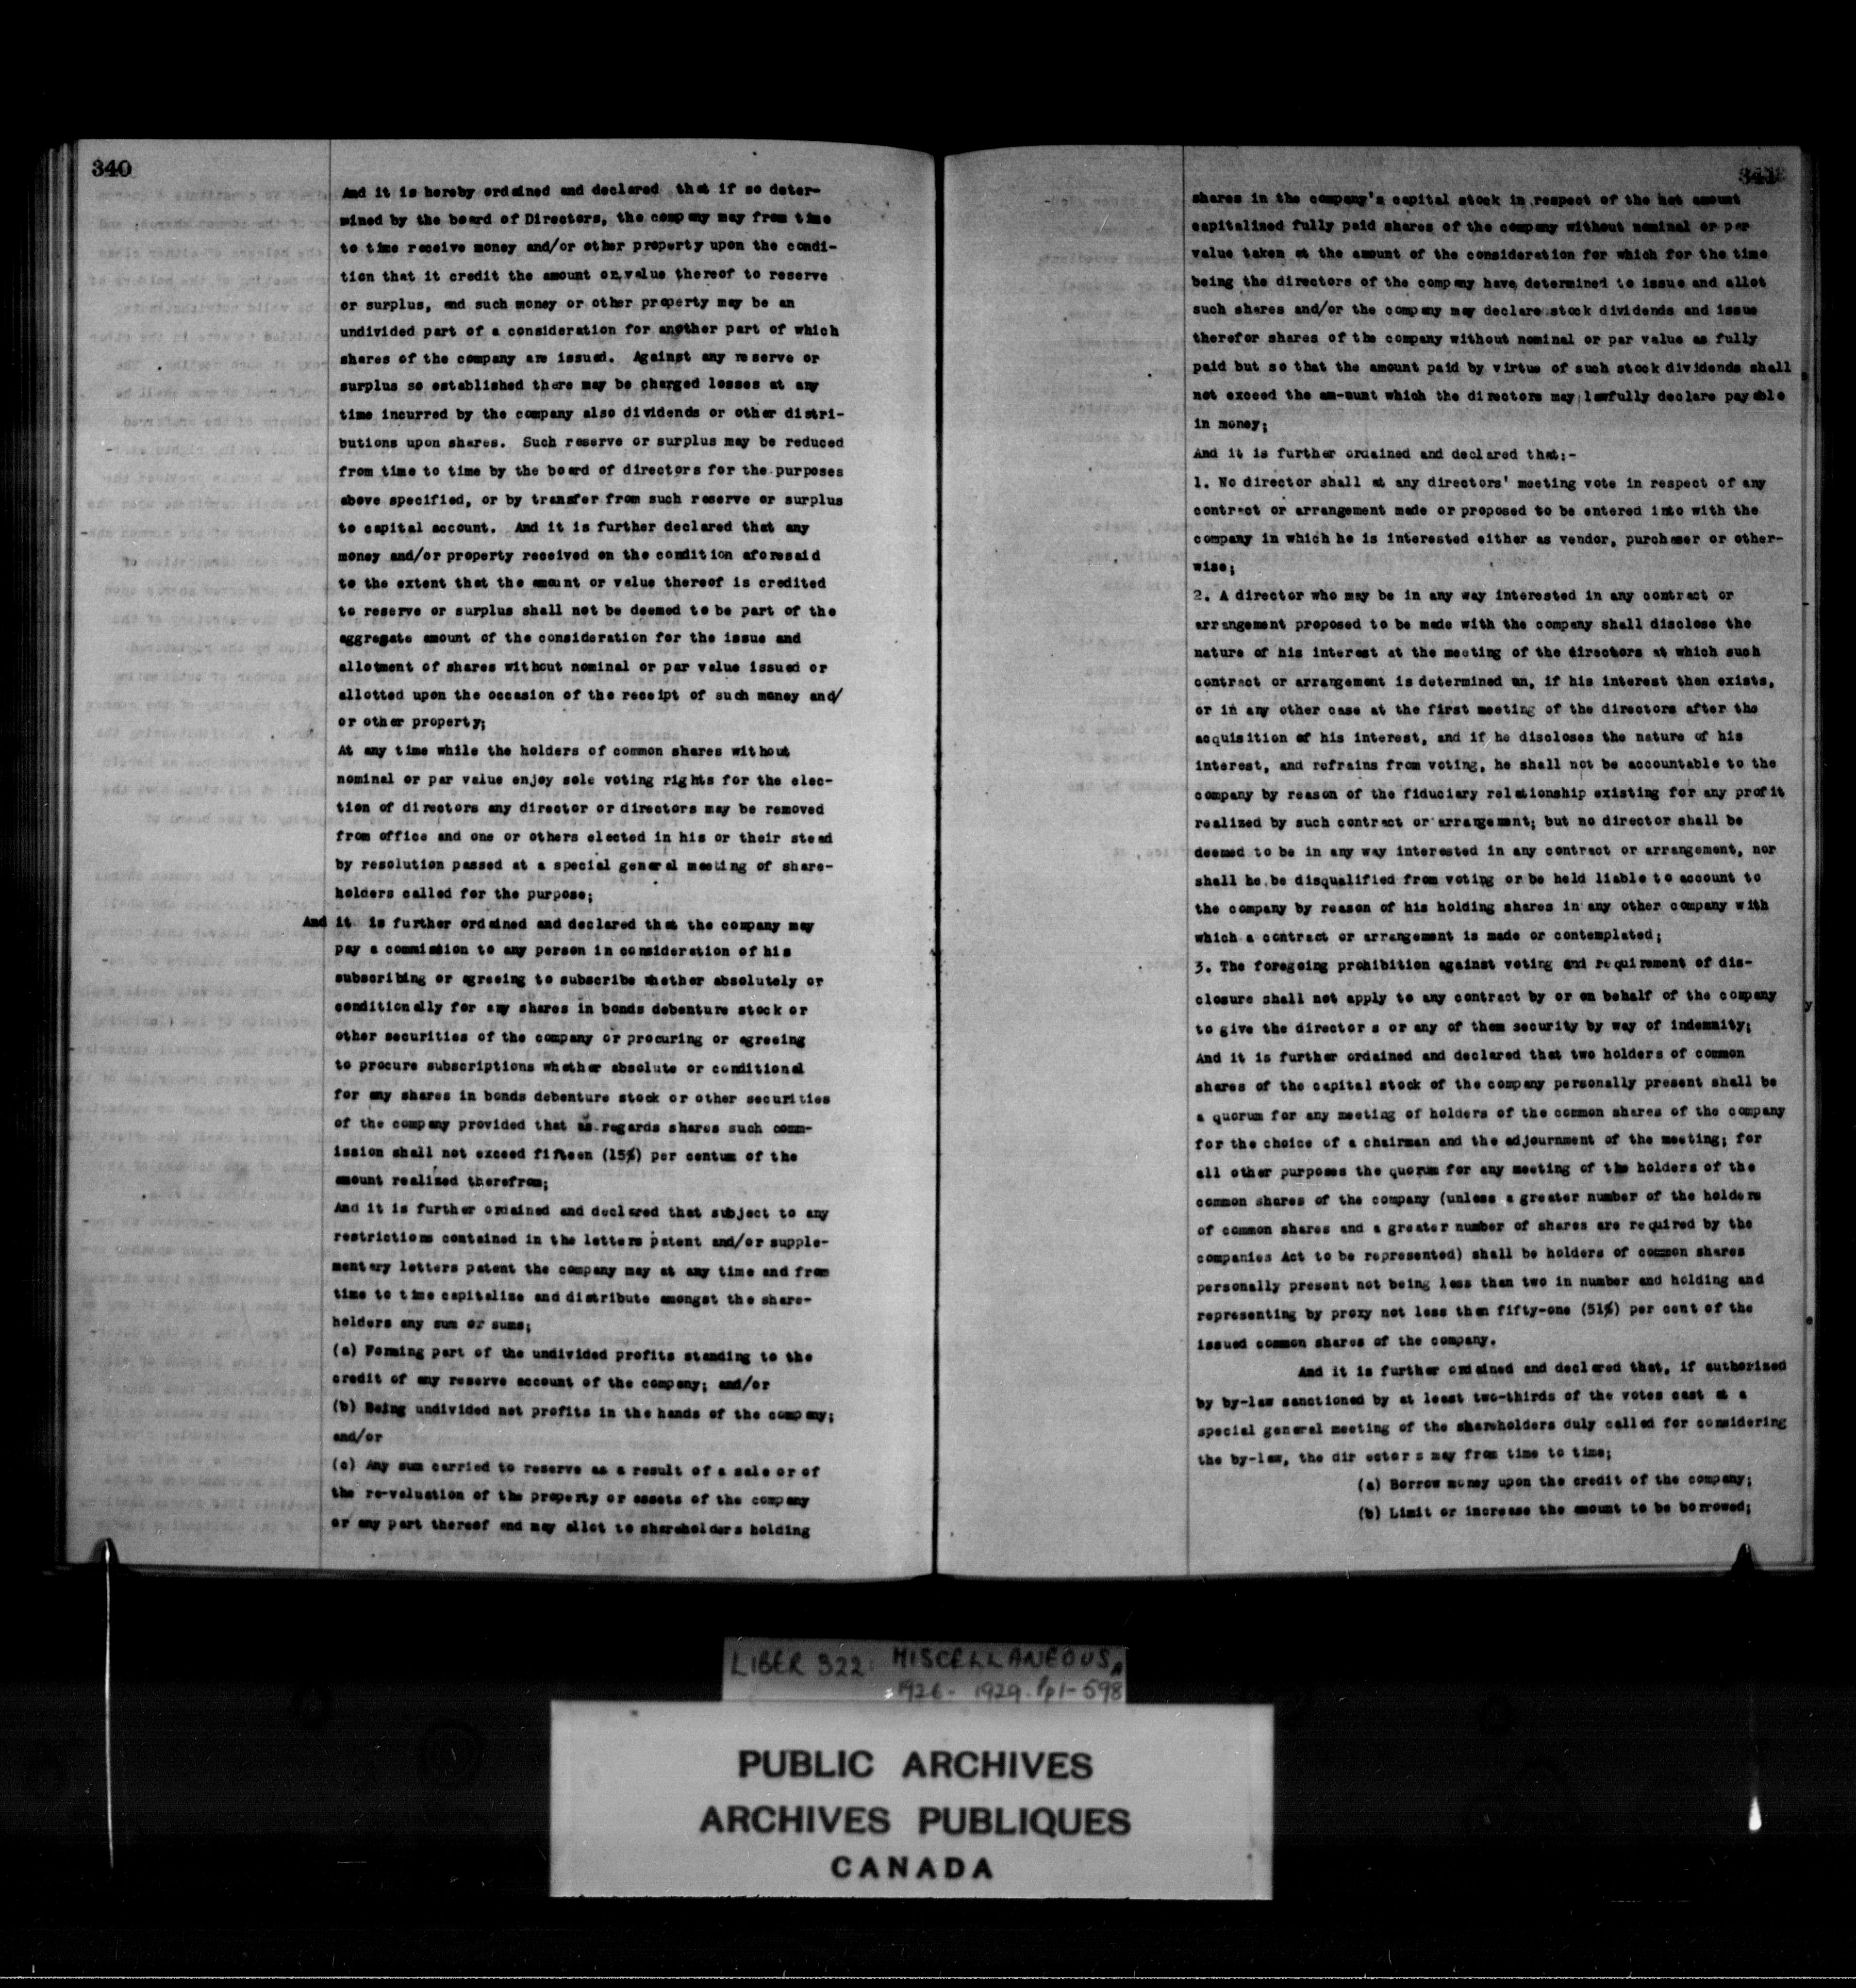 340
And it is hereby ordained and declared that if so deter-
mined by the board of Directors, the company may from time
to time receive money and/or other property upon the condi-
tion that it credit the amount or value thereof to reserve
or surplus, and such money or other property may be an
undivided part of a consideration for another part of which
shares of the company are issued. Against any reserve or
surplus so established there may be charged losses at any
time incurred by the company also dividends or other distri-
butions upon shares. Such reserve or surplus may be reduced
from time to time by the board of directors for the purposes
above specified, or by transfer from such reserve or surplus
to capital account. And it is further declared that any
money and/or property received on the condition aforesaid
to the extent that the amount or value thereof is credited
to reserve or surplus shall not be deemed to be part of the
aggregate amount of the consideration for the issue and
allotment of shares without nominal or par value issued or
allotted upon the occasion of the receipt of such money and/
or other property;
At any time while the holders of common shares without
nominal or par value enjoy sole voting rights for the elec-
tion of directors any director or directors may be removed
from office and one or others elected in his or their stead
by resolution passed at a special general meeting of share-
holders called for the purpose;
And it is further ordained and declared that the company may
pay a commission to any person in consideration of his
subscribing or agreeing to subscribe whether absolutely or
conditionally for any shares in bonds debenture stock or
other securities of the company or procuring or agreeing
to procure subscriptions whether absolute or conditional
for any shares in bonds debenture stock or other securities
of the company provided that as regards shares such comm-
ission shall not exceed fifteen (15%) per centum of the
amount realized therefrom;
And it is further ordained and declared that subject to any
restrictions contained in the letters patent and/or supple-
mentary letters patent the company may at any time and from
time to time capitalize and distribute amongst the share-
holders any sum or sums;
(a) Forming part of the undivided profits standing to the
credit of any reserve account of the company; and/or
(b) Being undivided net profits in the hands of the company;
and/or
(c) Any sum carried to reserve as a result of a sale or of
the re-valuation of the property or assets of the company
or any part thereof and may allot to shareholders holding
341
shares in the company's capital stock in respect of the net amount
capitalized fully paid shares of the company without nominal or par
value taken at the amount of the consideration for which for the time
being the directors of the company have determined to issue and allot
such shares and/or the company may declare stock dividends and issue
therefor shares of the company without nominal or par value as fully
paid but so that the amount paid by virtue of such stock dividends shall
not exceed the am-nunt which the directors may lawfully declare payable
in money;
And it is further ordained and declared that:-
1. No director shall at any directors' meeting vote in respect of any
contract or arrangement made or proposed to be entered into with the
company in which he is interested either as vendor, purchaser or other-
wise;
2. A director who may be in any way interested in any contract or
arrangement proposed to be made with the company shall disclose the
nature of his interest at the meeting of the directors at which such
contract or arrangement is determined on, if his interest then exists,
or in any other case at the first meeting of the directors after the
acquisition of his interest, and if he discloses the nature of his
interest, and refrains from voting, he shall not be accountable to the
company by reason of the fiduciary relationship existing for any profit
realized by such contract or arrangement; but no director shall be
deemed to be in any way interested in any contract or arrangement, nor
shall he be disqualified from voting or be held liable to account to
the company by reason of his holding shares in any other company with
which a contract or arrangement is made or contemplated;
3. The foregoing prohibition against voting and requirement of dis-
closure shall not apply to any contract by or on behalf of the company
to give the directors or any of them security by way of indemnity;
And it is further ordained and declared that two holders of common
shares of the capital stock of the company personally present shall be
a quorum for any meeting of holders of the common shares of the company
for the choice of a chairman and the adjournment of the meeting; for
all other purposes the quorum for any meeting of the holders of the
common shares of the company (unless a greater number of the holders
of common shares and a greater number of shares are required by the
companies Act to be represented) shall be holders of common shares
personally present not being less than two in number and holding and
representing by proxy not less then fifty-one (51%) per cent of the
issued common shares of the company.
And it is further ordained and declared that, if authorized
by by-law sanctioned by at least two-thirds of the votes cast at a
special general meeting of the shareholders duly called for considering
the by-law, the directors may from time to time;
(a) Borrow money upon the credit of the company;
(b) Limit or increase the amount to be borrowed;
LIBER 322: MISCELLANEOUS,
1926 - 1929. Pp1-598
PUBLIC ARCHIVES
ARCHIVES PUBLIQUES
CANADA